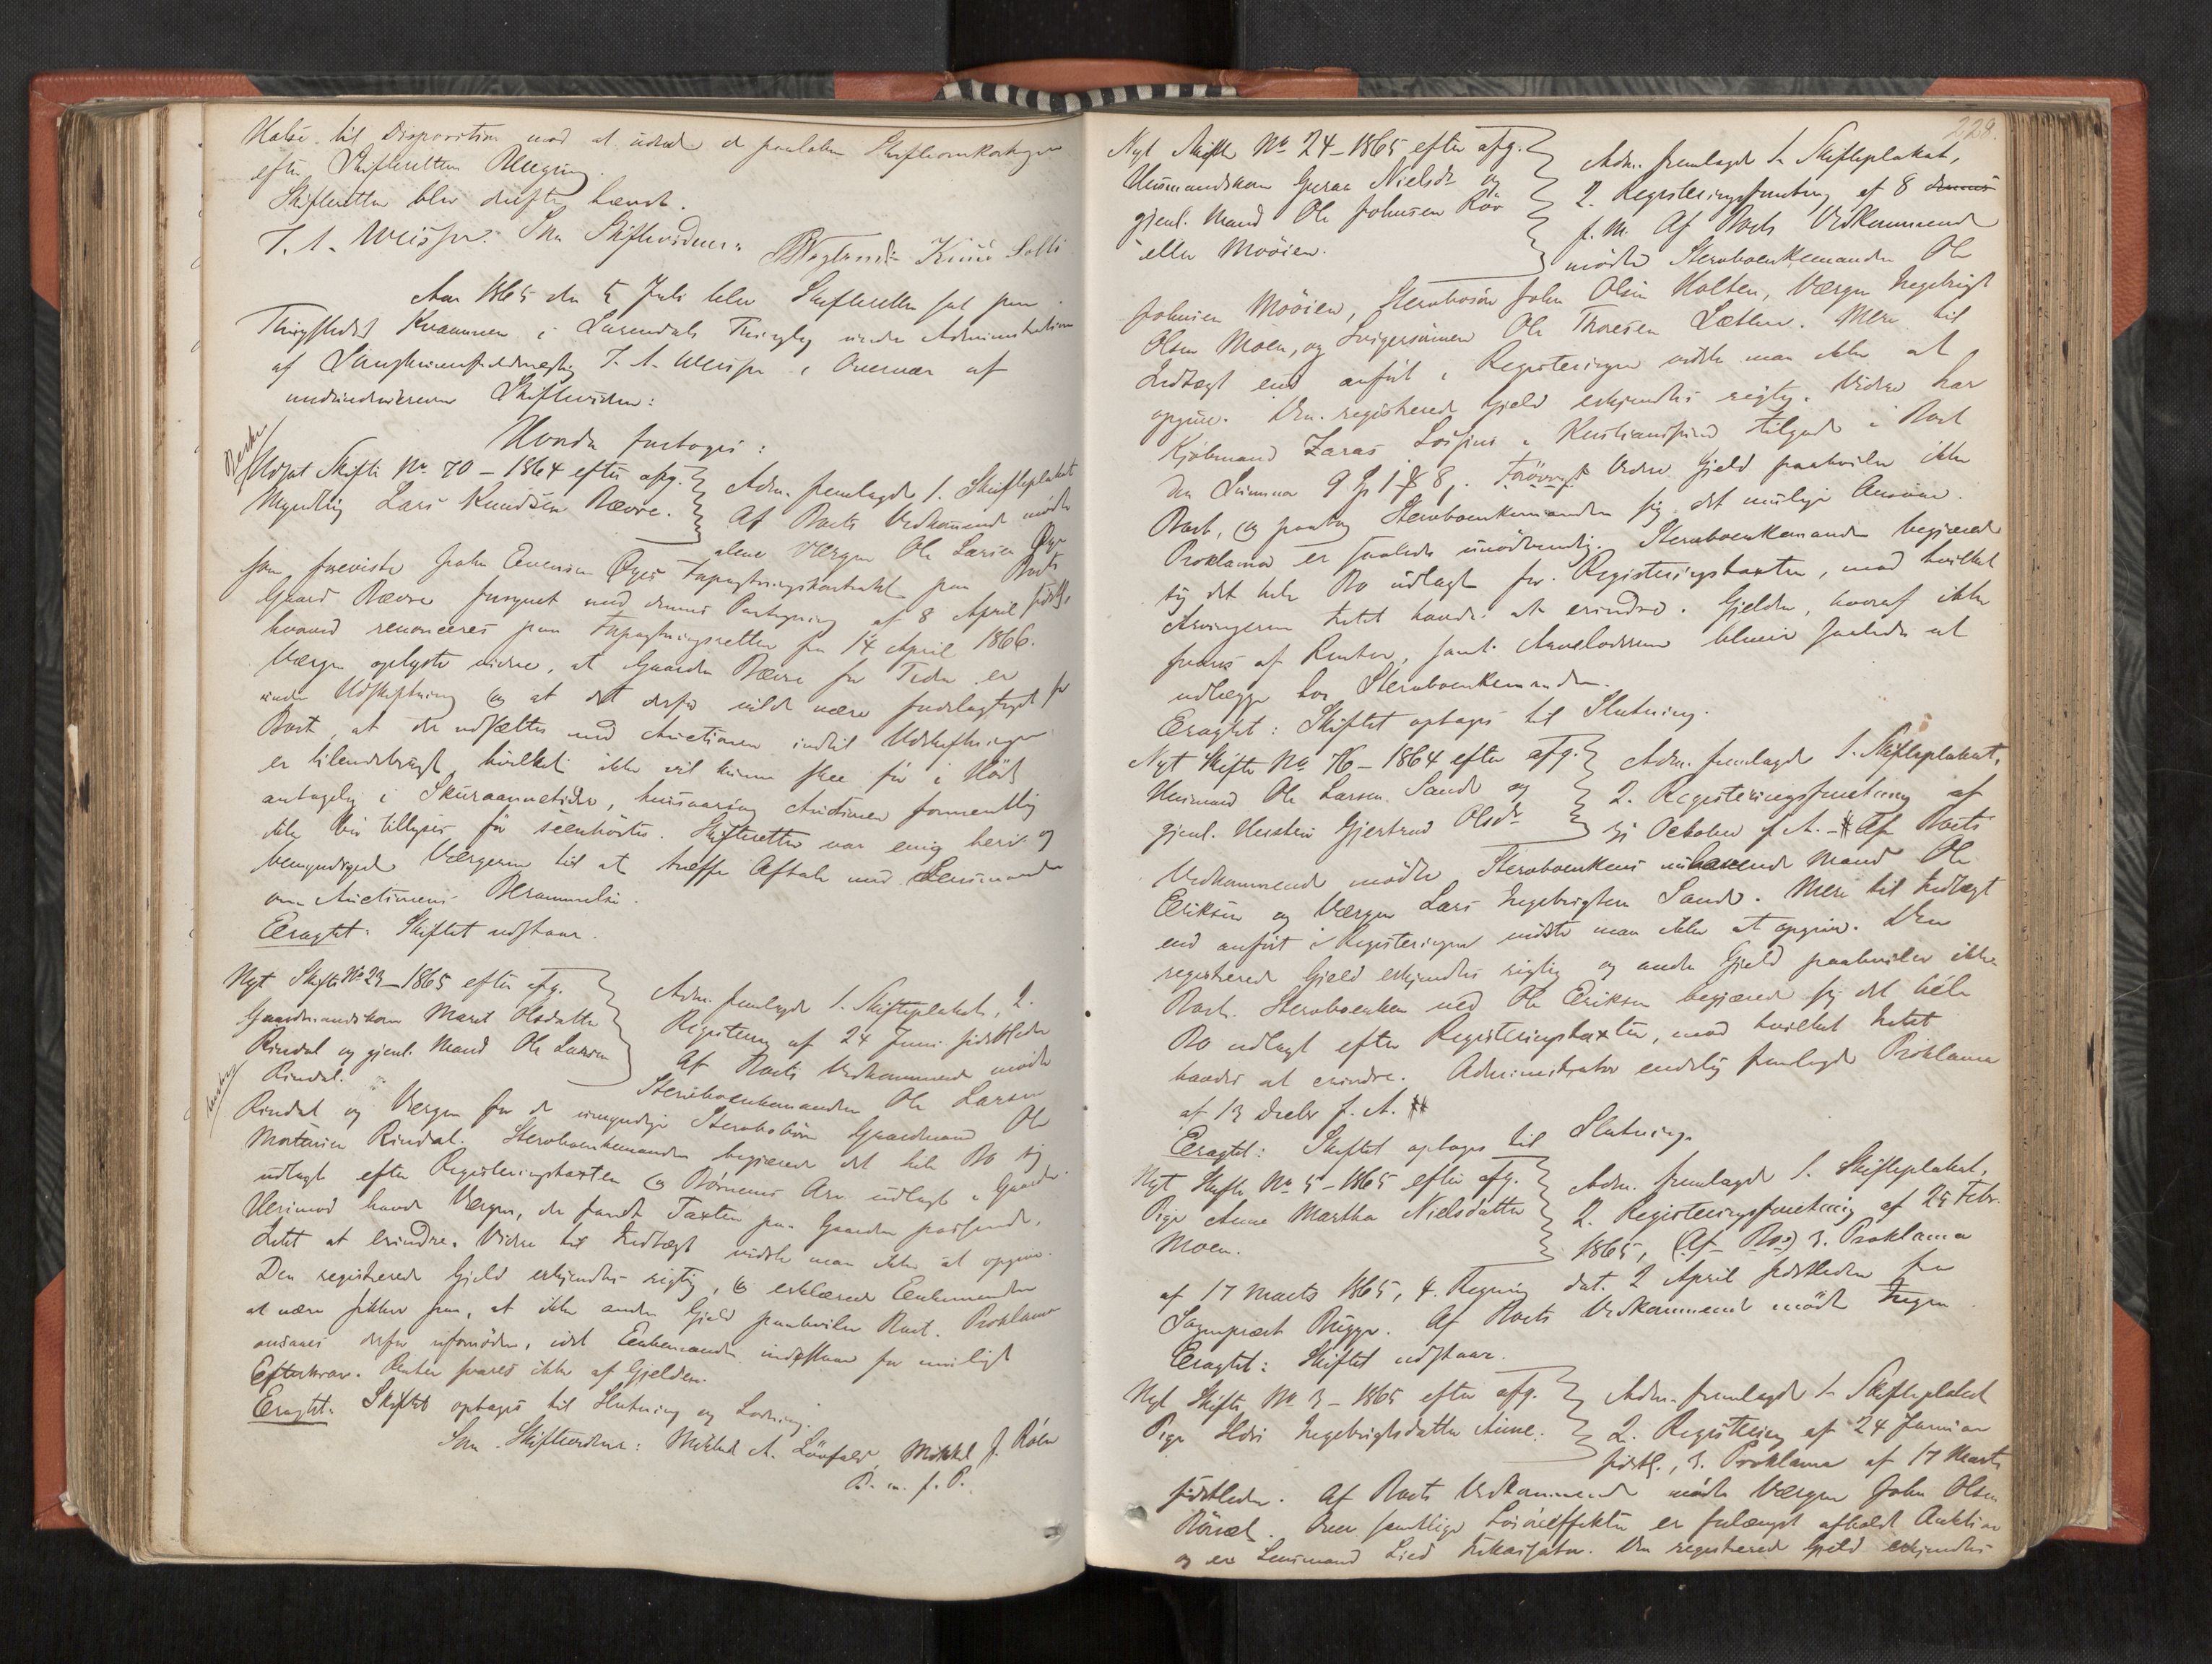 til Disposition mod at de paaløbne
efter Skifterettens
Skifteretten blev derefter hævet.
T. A. Weisser. Som Skiftevidner: Knud Solli
Aar 1865 den 5 Juli blev Skifteretten sat paa
Thingstedet Kvammen i Surendals Thinglag under Administration
af T. A. Weisser i Overvær af
undertegnede Skiftevidner:
Hvorda foretoges:
Udsat Skifte No 70 – 1864 efter afg.
Myndling Lars Knudsen Bævre.
Adm. fremlagde 1. Skifteplakat
Af Boets Vedkommende mødte
alene Værgen Ole Larsen Øye
som foreviste John Evensen Øyes Forpagtningskontrakt paa Boets
Gaard Bævre forsynet med dennes Paategning af 8 April sidstl.
hvorved renonceres paa Forpagtningsretten fra 14 April 1866.
Værgen oplyste videre, at Gaarden Bævre for Tiden er
under Udskiftning og at det derfor vilde være fordelagtigst for
Boet, at der udsættes med Auctionen indtil Udskiftningen
er tilendebragt, hvilket ikke vil kunne skee før i Høst
antagelig i Skuraannetiden, hvisaarsag Auctionen formentlig
ikke bør tillyses før seenhøstes. Skifteretten var enig heri og
bemyndigede Værgerne til at træffe Aftale med Lensmanden
om Auctionens Berammelse.
Eragtet: Skiftet udstaar.
Nyt Skifte No 23 – 1865 efter afg.
Gaardmandskone Marit Olsdatter
Rindal og gjenl. Mand Ole Larsen
Rindal.
Adm. fremlagde 1. Skifteplakat, 2.
Registering af 24 Juni sidstleden
Af Boets Vedkommende mødte
Stervboenkemanden Ole Larsen
Rindal og Værgen for de umyndige Stervbobørn Gaardmand Ole
Mortensen Rindal. Stervboenkemanden begjærede det hele Bo sig
udlagt efter Registeringstaxten og Børnenes Arv udlagt i Gaarden.
Herimod havde Værgen, der fandt Taxten paa Gaarden passende,
Intet at erindre. Videre til Indtægt vidste man ikke at opgive.
Den registrerede Gjeld erkjendtes rigtig, og erklærede Enkemanden
at være sikker paa, at ikke anden Gjeld paahviler Boet. Proklama
ansaaes derfor ufornøden, idet Enkemanden indestaar for muligt
Efterkrav. Renter svares ikke af Gjelden.
Eragtet: Skiftet optages til Slutning og Lodning.
Som Skiftevidner: Mikkel A. Lønfald, Mikkel J. Røen
B. m. f. P.
228.
Nyt Skifte No 24 – 1865 efter afg.
Huusmandskone Guraa Nielsdr og
gjenl. Mand Ole Johnsen Røv
eller Moøien.
Adm. fremlagde 1. Skifteplakat,
2. Registeringsforretning af 8 dennes
f. M. Af Boets Vedkommende
mødte Stervboenkemanden Ole
Johnsen Moøien, Stervbosøn John Olsen Holten, Værgen Ingebrigt
Olsen Moen, og Svigersønnen Ole Thoresen Sæther. Mere til
Indtægt end anført i Registeringen vidste man ikke at
opgive. Den registrerede Gjeld erkjendtes rigtig. Videre har
Kjøbmand Zaras i Kristiansund tilgode i Boet
den Summa 9 Sp 1 ₰ 8 ,. Forøvrigt Videre Gjeld paahviler ikke
Boet, og paatog Stervboenkemanden sig det mulige Ansvar.
Proklama er saaledes unødvendig. Stervboenkemanden begjærede
sig det hele Bo udlagt for Registeringstaxten, mod hvilket
Arvingerne Intet havde at erindre. Gjelden, hvoraf ikke
svares af Renter, samt Arvelodderne bliver saaledes at
udlægge hos Stervboenkemanden.
Eragtet: Skiftet optages til Slutning.
Nyt Skifte No 76 – 1864 efter afg.
Huusmand Ole Larsen Sande og
gjenl. Hustru Gjertrud Olsdr
Adm. fremlagde 1. Skifteplakat,
2. Registeringsforretning af
October f. A. – Af Boets
Vedkommende mødte Stervboenkens nuhavende Mand Ole
Eriksen og Værgen Lars Ingebrigtsen Sande. Mere til Indtægt
end anført i Registeringen vidste man ikke at opgive. Den
registrerede Gjeld erkjendtes rigtig og anden Gjeld paahviler ikke
Boet. Stervboenken ved Ole Eriksen begjærede sig det hele
Bo udlagt efter Registeringstaxten, mod hvilket Intet
havdes at erindre. Administrator endelig fremlagde Proklama
af 13 Decbr f. A.
Eragtet: Skiftet optages til Slutning.
Nyt Skifte No 5 – 1865 efter afg.
Pige Anne Martha Nielsdatter
Moen.
Adm. fremlagde 1. Skifteplakat,
2. Registeringsforretning af 25 Febr.
1865, 3. Proklama
af 17 Marts 1865, 4. Regning dat. 2 April sidstleden fra
Sognepræst Bugge. Af Boets Vedkommende mødte Ingen
Eragtet: Skiftet udstaar.
Nyt Skifte No 3 – 1865 efter afg.
Pige Ildri Ingebrigtsdatter Aune.
Adm. fremlagde 1. Skifteplakat
2. Registering af 24 Januar
sidstl., 3. Proklama af 17 Marts
sidstleden. Af Boets Vedkommende mødte Værgen John Olsen
Over samtlige Løsøreeffekter er forlængst afholdt Auktion
og er Lensmand Lied Inkassator. Den registrerede Gjeld erkjendtes